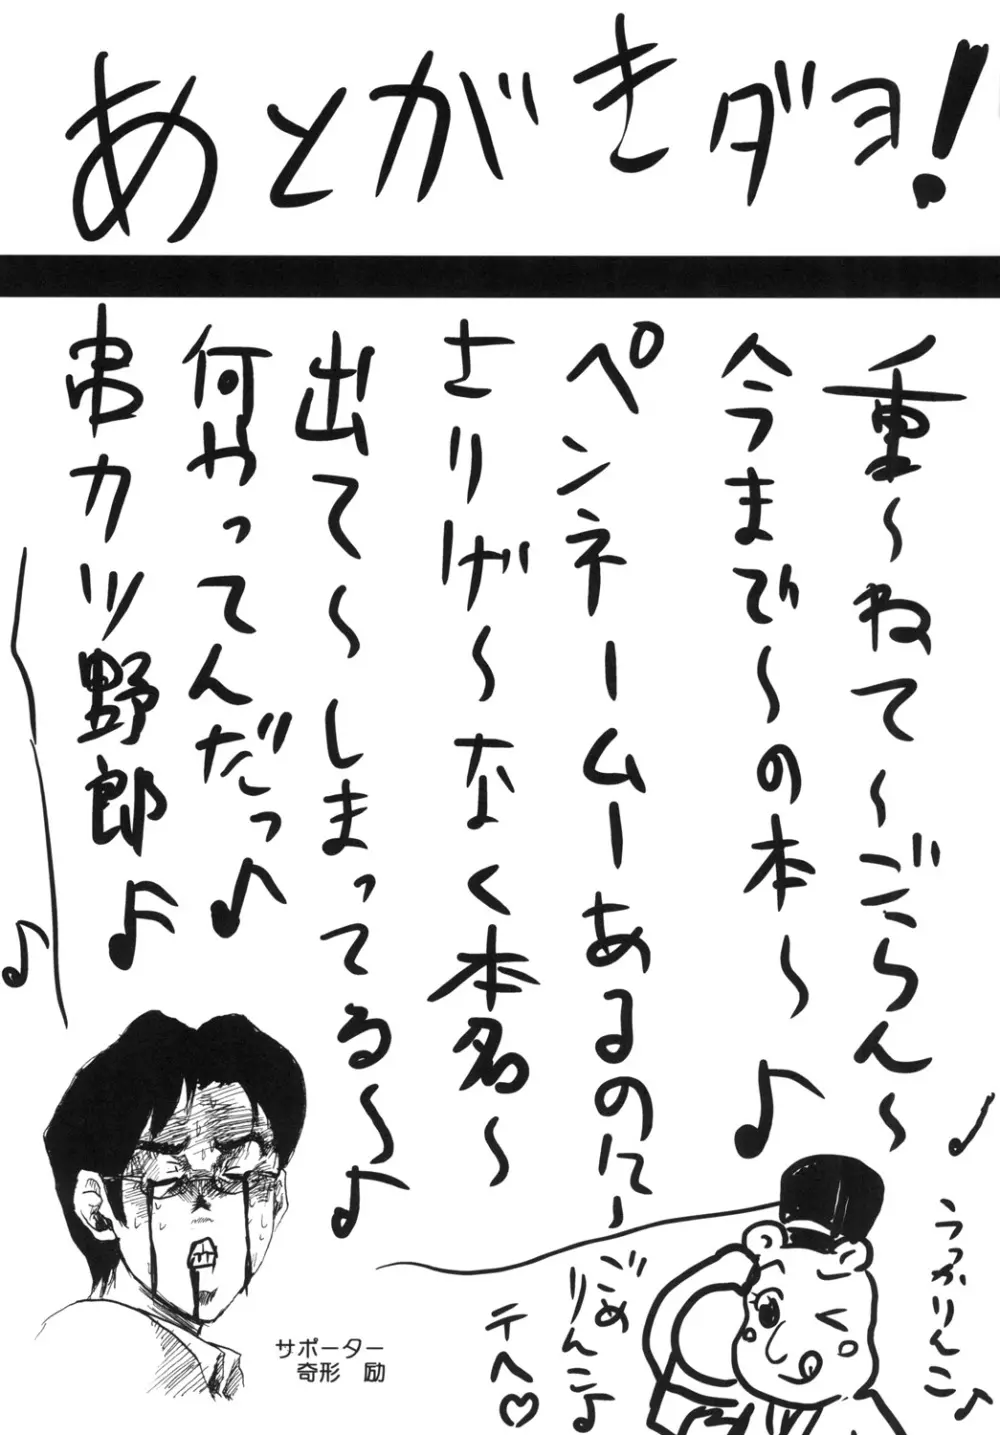 あとがきダヨ!
重～ねて～ごらん～
今まで～の本～♪
ペンネームーあるのにー
さりげ～なく本名～
出て～しまってる～♪
何やってんだっ♪
串カツ野郎♪
♪
うっかりんこ♪
ごめ
りんこ♪
テヘ♡
サポーター
奇形 励